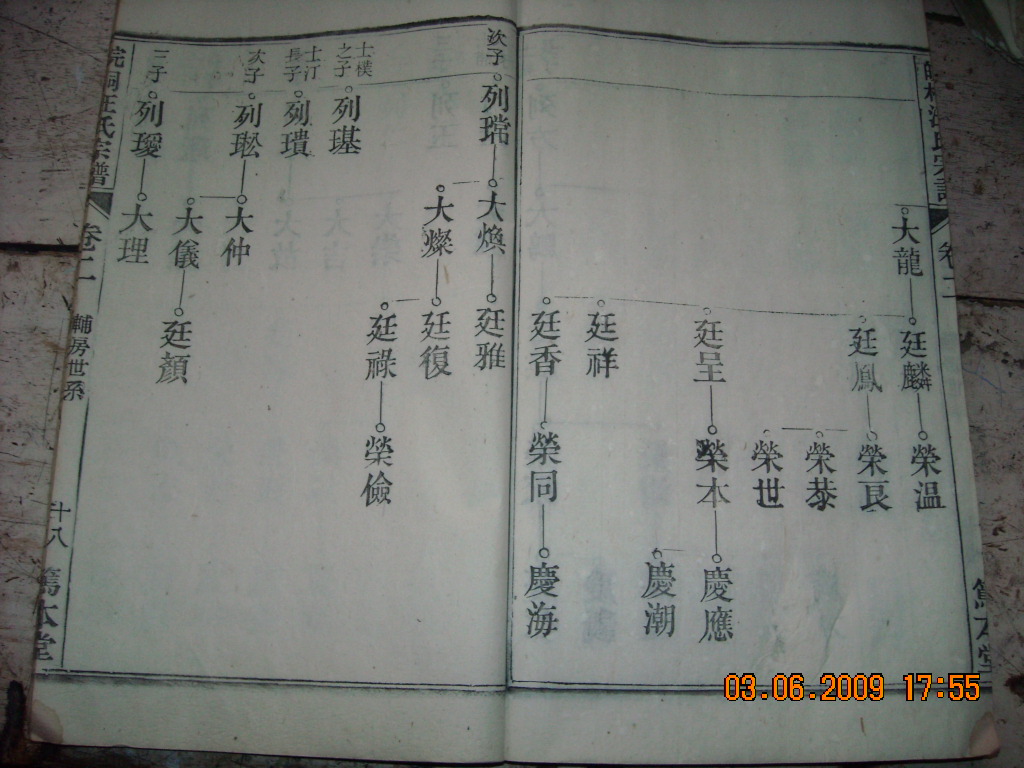 大龍
廷麟
榮温
廷鳳
榮良
榮恭
榮世
廷呈
榮本
慶應
慶潮
廷祥
廷香
榮同
慶海
次子
列瑺
大煥
廷雅
大燦
廷復
廷祿
榮儉
士樸之子
列璂
士汀長子
列璝
次子
列瑽
大仲
大儀
廷顏
三子
列璦
大理
皖桐汪氏宗譜
卷二
輔房世系
十八
篤本堂
卷二
篤本堂
03.06.2009 17:55